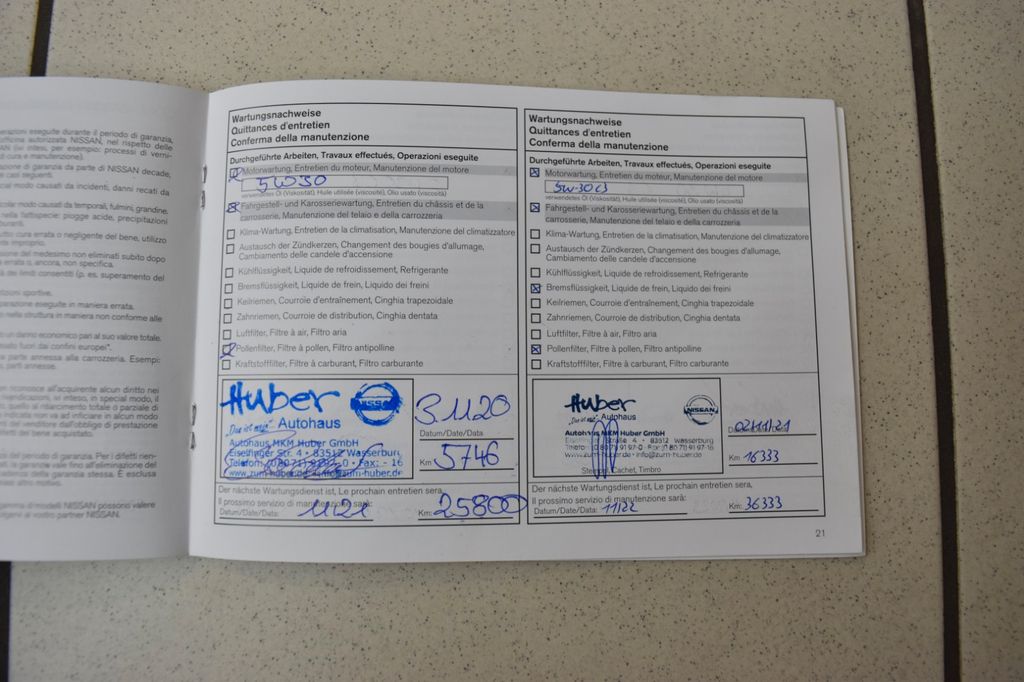 operazioni eseguite durante il periodo di garanzia,
officina autorizzata NISSAN, nel rispetto delle
AN (ivi intesi, per esempio: processi di verni-
di cura e manutenzione).
zione di garanzia da parte di NISSAN decade,
casi seguenti.
cial modo causati da incidenti, danni recati da
colar modo causati da temporali, fulmini, grandine.
nella fattispecie: piogge acide, precipitazioni
tto cura errata o negligente del bene, utilizzo
improprio.
one del medesimo non eliminati subito dopo
errata o, ancora, non specifica.
dei limiti consentiti (p. es. superamento del
sportive.
parazione eseguite in maniera errata.
nella struttura in maniera non conforme alle
un danno economico pari al suo valore totale.
fuori dai confini europei".
parte annessa alla carrozzeria. Esempi:
parti annesse.
riconosce all'acquirente alcun diritto nei
Wartungsnachweise
Quittances d'entretien
Conferma della manutenzione
Durchgeführte Arbeiten, Travaux effectués, Operazioni eseguite
Motorwartung, Entretien du moteur, Manutenzione del motore
5W30
verwendetes Öl (Viskosität), Huile utilisée (viscosité), Olio usato (viscosità)
Fahrgestell- und Karosseriewartung, Entretien du châssis et de la
carrosserie, Manutenzione del telaio e della carrozzeria
Klima-Wartung, Entretien de la climatisation, Manutenzione del climatizzatore
Austausch der Zündkerzen, Changement des bougies d'allumage,
Cambiamento delle candele d'accensione
Kühlflüssigkeit, Liquide de refroidissement, Refrigerante
Bremsflüssigkeit, Liquide de frein, Liquido dei freini
Keilriemen, Courroie d'entraînement, Cinghia trapezoidale
Zahnriemen, Courroie de distribution, Cinghia dentata
Luftfilter, Filtre à air, Filtro aria
Pollenfilter, Filtre à pollen, Filtro antipolline
Kraftstofffilter, Filtre à carburant, Filtro carburante
Huber
NISSAN
„Das ist mein" Autohaus
Autohaus MKM Huber GmbH
Eiselfinger Str. 4 • 83512 Wasserburg
3.11.20
Datum/Date/Data
Km 5746
Der nächste Wartungsdienst ist, Le prochain entretien sera,
Il prossimo servizio di manutenzione sarà:
Datum/Date/Data: 11/21
Km: 25800
Wartungsnachweise
Quittances d'entretien
Conferma della manutenzione
Durchgeführte Arbeiten, Travaux effectués, Operazioni eseguite
Motorwartung, Entretien du moteur, Manutenzione del motore
5W-30 C3
verwendetes Öl (Viskosität), Huile utilisée (viscosité), Olio usato (viscosità)
Fahrgestell- und Karosseriewartung, Entretien du châssis et de la
carrosserie, Manutenzione del telaio e della carrozzeria
Klima-Wartung, Entretien de la climatisation, Manutenzione del climatizzatore
Austausch der Zündkerzen, Changement des bougies d'allumage,
Cambiamento delle candele d'accensione
Kühlflüssigkeit, Liquide de refroidissement, Refrigerante
Bremsflüssigkeit, Liquide de frein, Liquido dei freini
Keilriemen, Courroie d'entraînement, Cinghia trapezoidale
Zahnriemen, Courroie de distribution, Cinghia dentata
Luftfilter, Filtre à air, Filtro aria
Pollenfilter, Filtre à pollen, Filtro antipolline
Kraftstofffilter, Filtre à carburant, Filtro carburante
Huber
NISSAN
Autohaus
Autohaus MKM Huber GmbH
Straße 4 • 83512 Wasserburg
Stempel, Cachet, Timbro
02/11/21
Km 16333
Der nächste Wartungsdienst ist, Le prochain entretien sera,
Il prossimo servizio di manutenzione sarà:
Datum/Date/Data: 11/22
Km: 36333
21